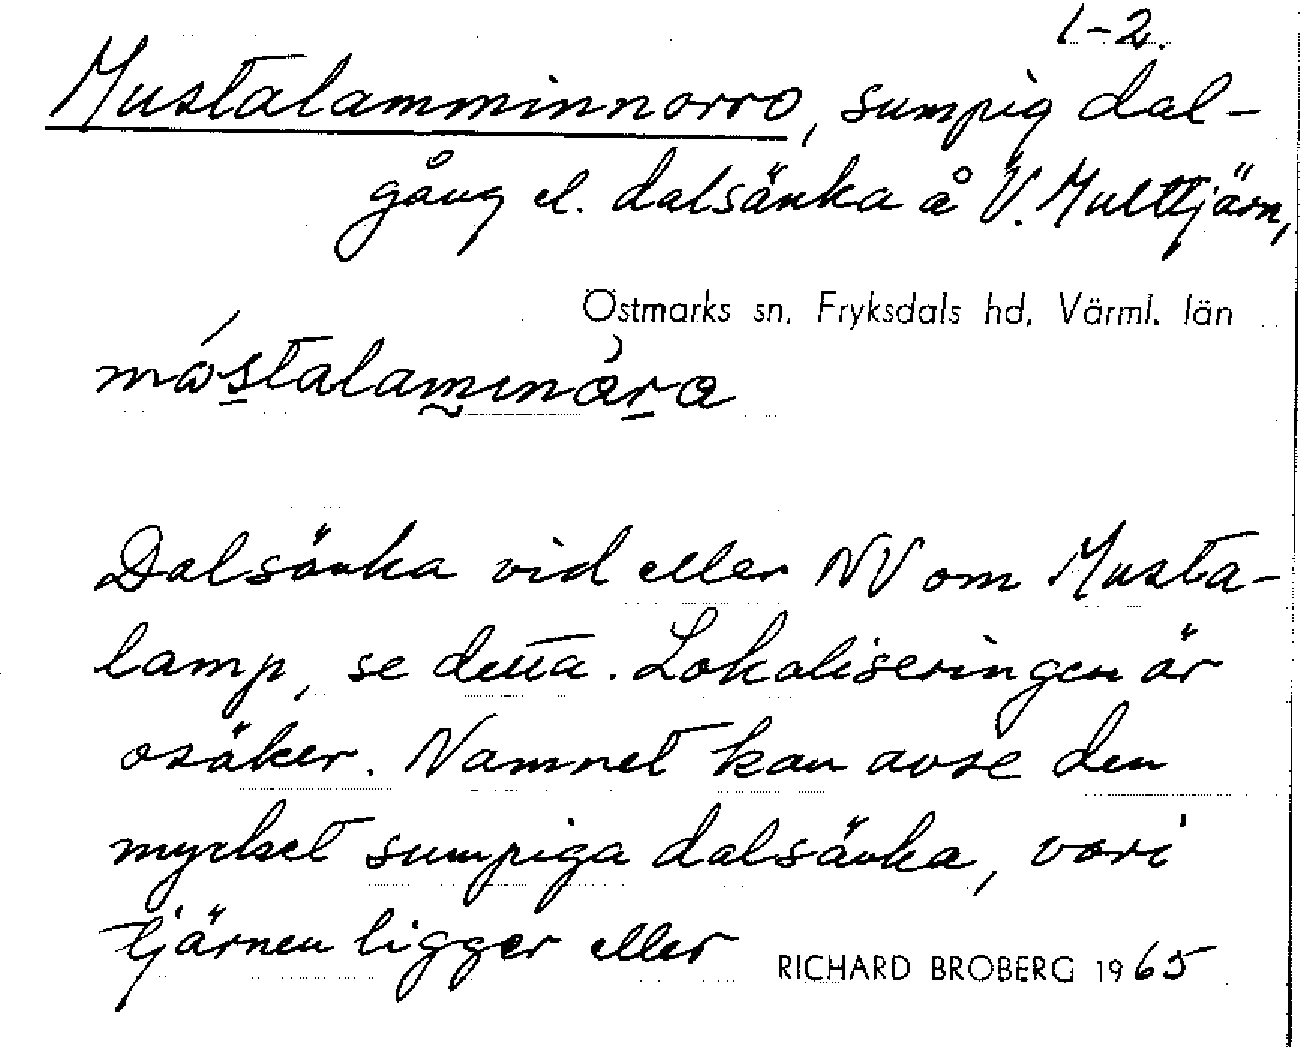 1-2.
Mustalamminnorro, sumpig dal-
gång el. dalsänka å V. Multtjärn,
Östmarks sn, Fryksdals hd, Värml. län
Dalsänka vid eller NV om Musta-
lamp, se detta. Lokaliseringen är
osäker. Namnet kan avse den
mycket sumpiga dalsänka, vari
tjärnen ligger eller
RICHARD BROBERG 1965